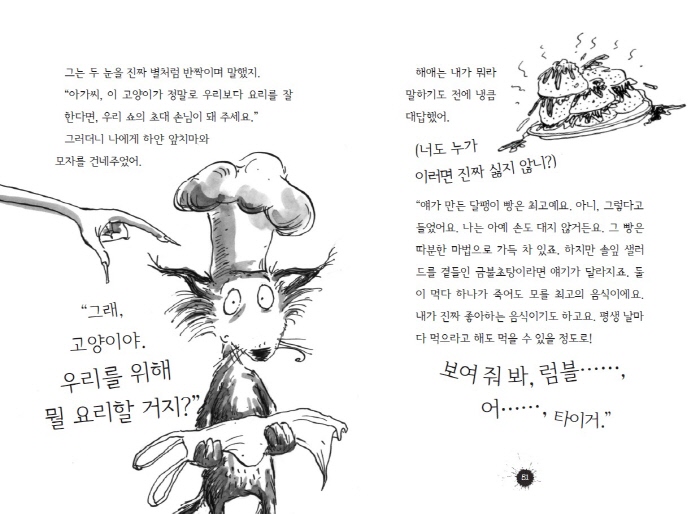 그는 두 눈을 진짜 별처럼 반짝이며 말했지.
“아가씨, 이 고양이가 정말로 우리보다 요리를 잘
한다면, 우리 쇼의 초대 손님이 돼 주세요.”
그러더니 나에게 하얀 앞치마와
모자를 건네주었어.
“그래,
고양이야.
우리를 위해
뭘 요리할 거지?”
해애는 내가 뭐라
말하기도 전에 냉큼
대답했어.
(너도 누가
이러면 진짜 싫지 않니?)
“얘가 만든 달팽이 빵은 최고예요. 아니, 그렇다고
들었어요. 나는 아예 손도 대지 않거든요. 그 빵은
따분한 마법으로 가득 차 있죠. 하지만 솔잎 샐러
드를 곁들인 곰볼초탕이라면 얘기가 달라지죠. 둘
이 먹다 하나가 죽어도 모를 최고의 음식이에요.
내가 진짜 좋아하는 음식이기도 하고요. 평생 날마
다 먹으라고 해도 먹을 수 있을 정도로!
보여 줘 봐, 럼블……,
어……, 타이거.”
81